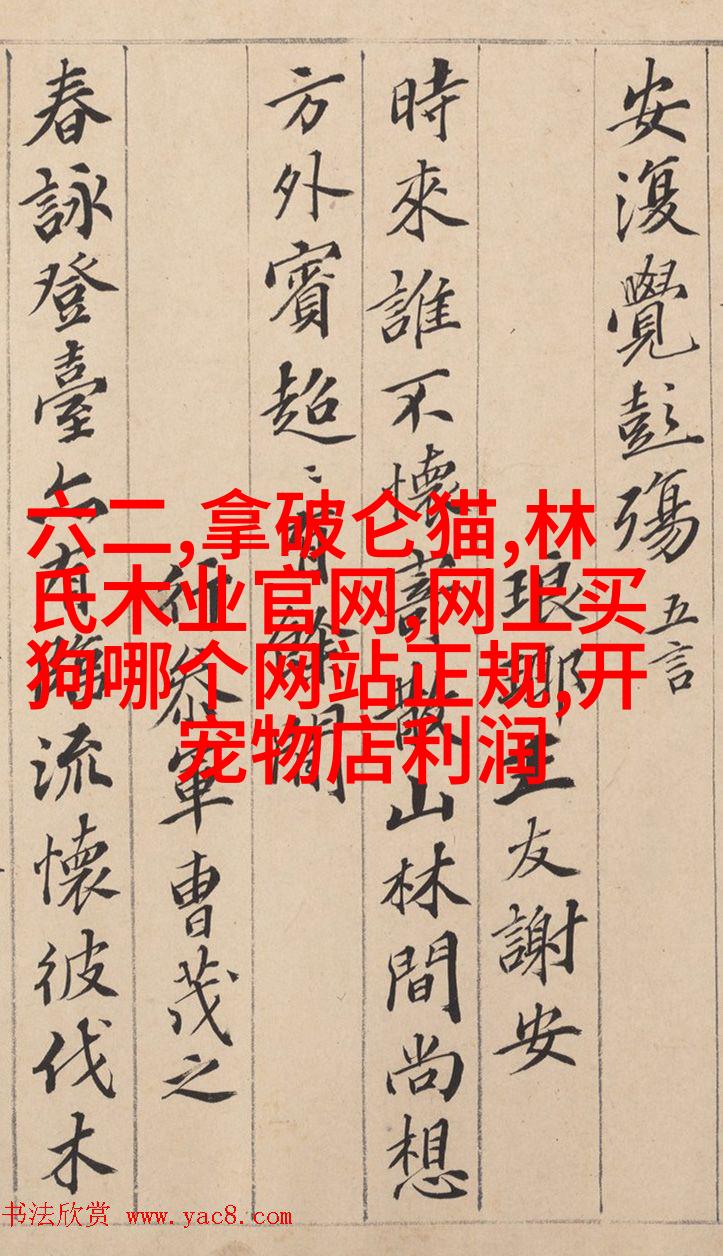 安復覺彭殤 五言
琅耶王友謝安
時來誰不懷寄散山林間尚想
方外賓超〻有餘閒
行參軍曹茂之
春詠登臺亦有臨流懷彼伐木
六二,拿破仑猫,林
氏木业官网,网上买
狗哪个网站正规,开
宠物店利润
书法欣赏 www.yac8.com